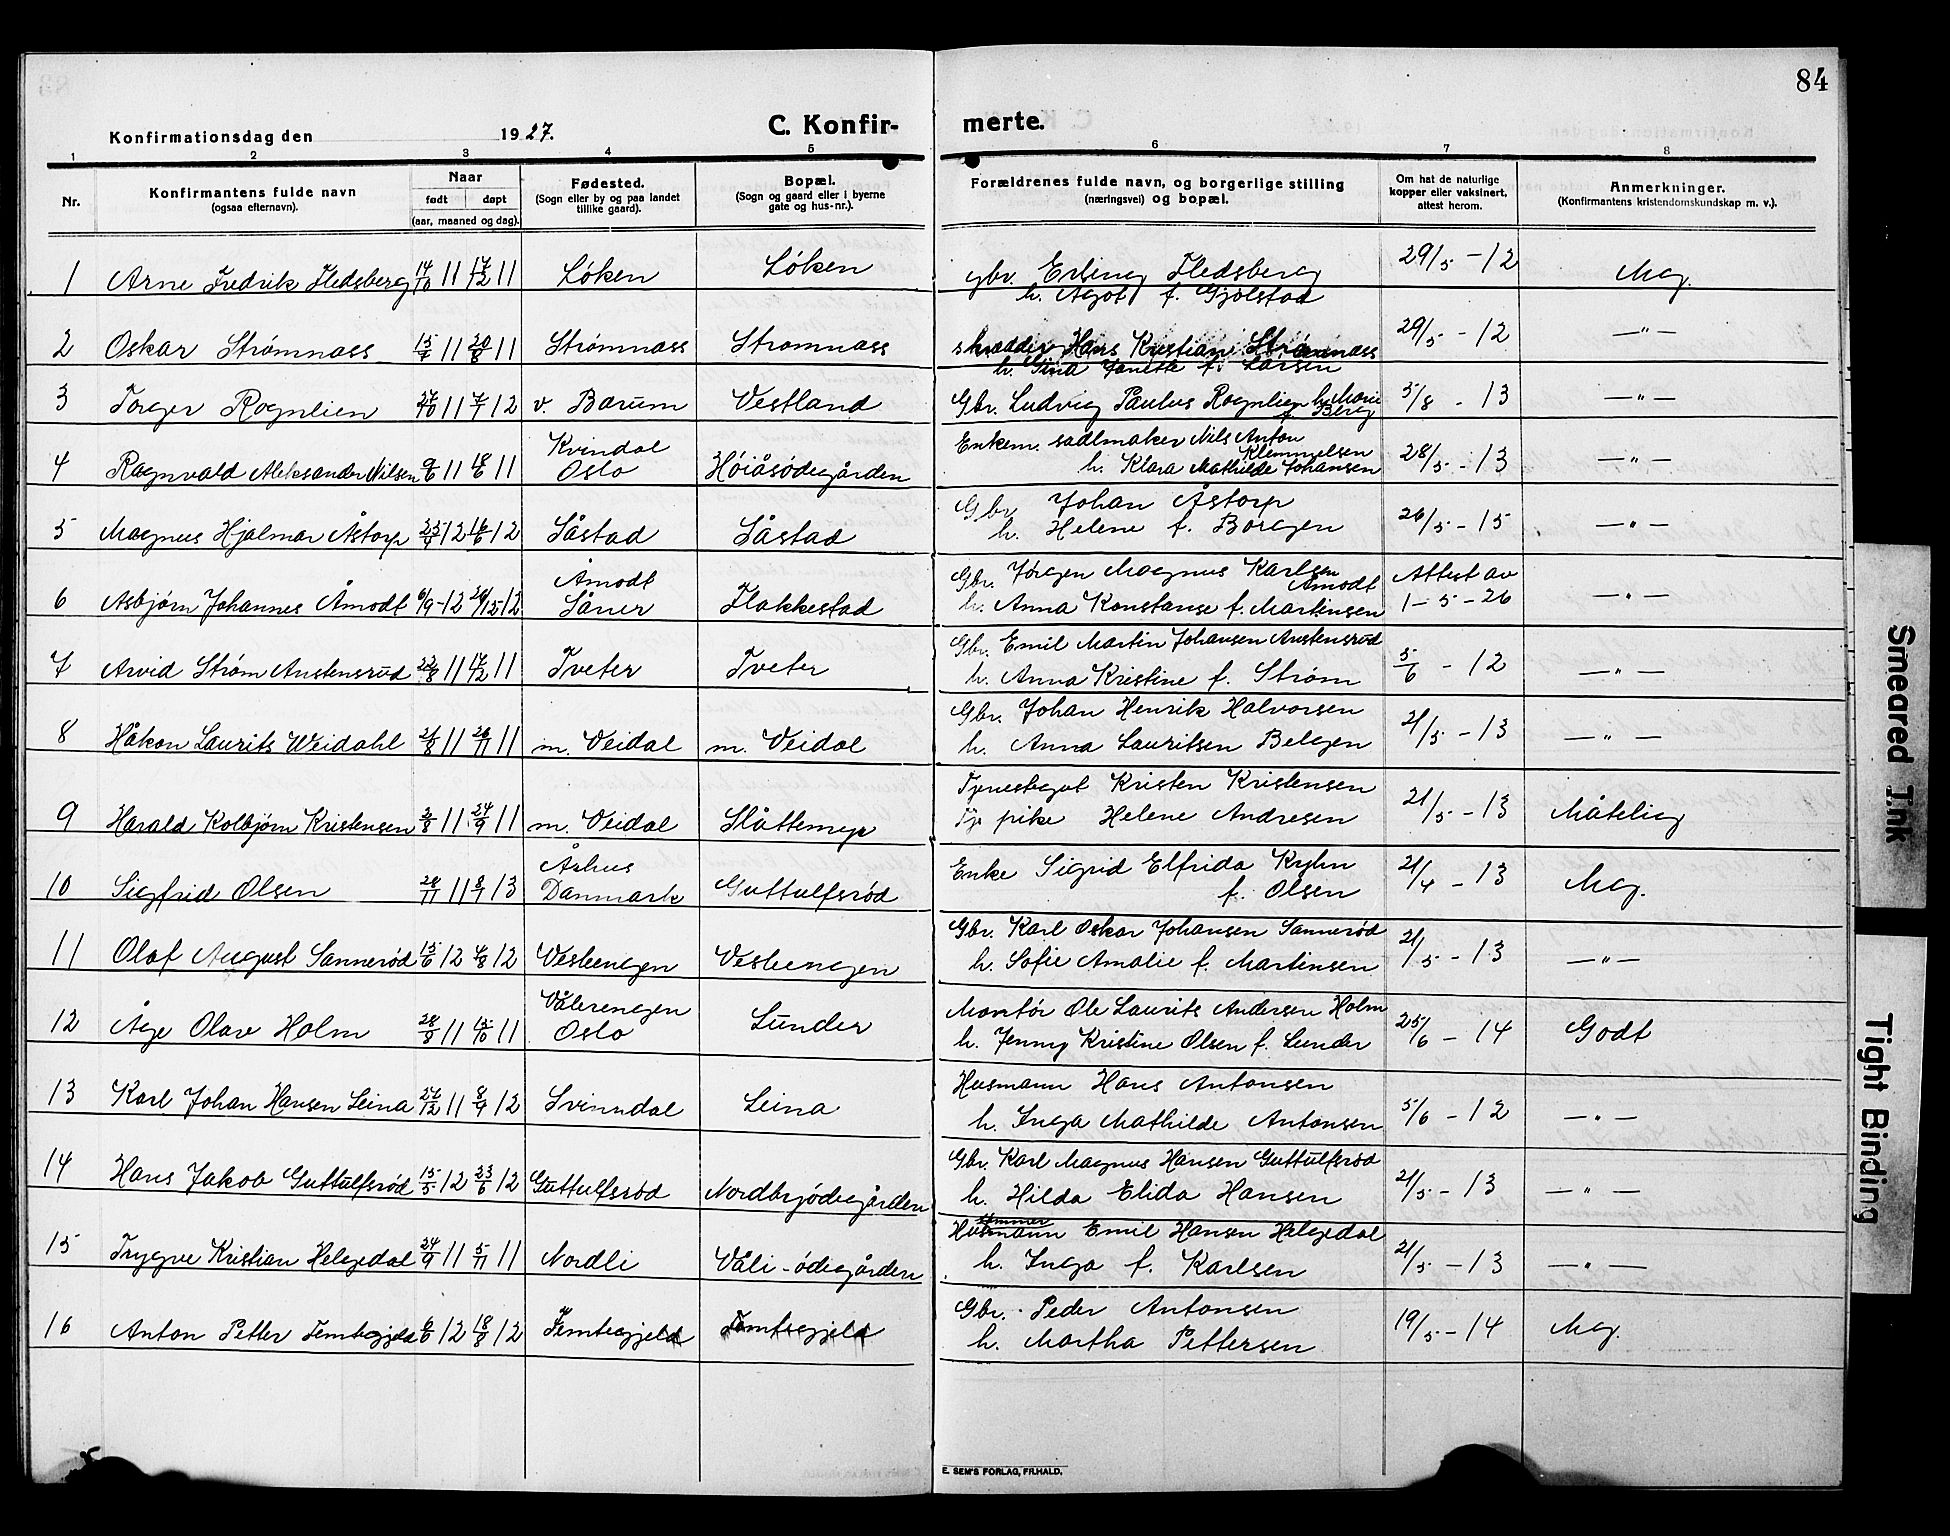 84
Konfirmationsdag den 1927. C. Konfirmerte.
1 2 3 4 5 6 7 8
Nr. Konfirmantens fulde navn (ogsaa efternavn). Naar født døpt (aar, maaned og dag). Fødested. (Sogn eller by og paa landet tillike gaard). Bopæl. (Sogn og gaard eller i byerne gate og hus-nr.). Forældrenes fulde navn, og borgerlige stilling (næringsvei) og bopæl. Om hat de naturlige kopper eller vaksinert, attest herom. Anmerkninger. (Konfirmantens kristendomskundskap m. v.).
1 Arne Fredrik Fledsberg 14/10 11 17/12 11 Løken Løken gbr. Erling Fledsberg 29/5 - 12 Mg.
h. Agot f. Gjølstad
2 Oskar Strømnæss 15/7 11 20/8 11 Strømnæss Strømnæss skrædder Hans Kristian Strømnæss 29/5 - 12 —"—
h. Gina Janette f. Larsen
3 Torger Rognlien 27/10 11 7/1 12 v. Bærum Vestland Gbr. Ludvig Paulus Rognlien h. Marie 5/8 - 13 —"—
f. Berg
4 Ragnvald Aleksander Nilsen 9/6 11 18/6 11 Kvindal Oslo Høiåsødegården Enkem. sadlmaker Nils Anton Klemmetsen 28/5 - 13 —"—
h. Klara Mathilde Johansen
5 Magnus Hjalmar Åstorp 25/4 12 16/6 12 Såstad Såstad Gbr. Johan Åstorp 26/5 - 15 —"—
h. Helene f. Borgen
6 Asbjørn Johannes Åmodt 6/9 - 12 26/12 12 Åmodt Såner Flakkestad Gbr. Jørgen Magnus Karlsen Åmodt Attest av 1 - 5 - 26 —"—
h. Anna Konstanse f. Martensen
7 Arvid Strøm Austensrud 22/8 11 17/12 11 Tveter Tveter Gbr. Emil Martin Johansen Austensrud 5/6 - 12 —"—
h. Anna Kristine f. Strøm
8 Håkon Laurits Weidahl 21/8 11 26/11 11 m. Veidal m. Veidal Gbr. Johan Henrik Halvorsen 21/5 - 13 —"—
h. Anna Lauritsen Belgen
9 Harald Kolbjørn Kristensen 3/8 11 24/9 11 m. Veidal Slåttemyr Tjenestegut Kristen Kristensen 21/5 - 13 Måtelig
Tj. pike Helene Andresen
10 Sigfrid Olsen 28/11 11 8/1 13 Århus Danmark Guttulfsrød Enke Sigrid Elfrida Kyhn 21/4 - 13 Mg.
f. Olsen
11 Olaf August Sannerød 15/6 12 4/8 12 Vestengen Vestengen Gbr. Karl Oskar Johansen Sannerød 21/5 - 13 —"—
h. Sofie Amalie f. Martinsen
12 Åge Olav Holm 28/8 11 15/10 11 Vålerengen Oslo Sunder Montør Ole Laurits Andersen Holm 25/6 - 14 Godt
h. Jenny Kristine Olsen f. Sunder
13 Karl Johan Hansen Leina 27/12 11 8/4 12 Svinndal Leina Husmann Hans Antonsen 5/6 - 12 —"—
h. Inga Mathilde Antonsen
14 Hans Jakob Guttulfsrød 15/5 12 23/6 12 Guttulfsrød Nordbyødegården Gbr. Karl Magnus Hansen Guttulfsrød 21/5 - 13 —"—
h. Hilda Elida Hansen
15 Trygve Kristian Helgedal 24/9 11 5/11 11 Nordli Våli-ødegården Husmann Emil Hansen Helgedal 21/5 - 13 —"—
h. Inga f. Karlsen
16 Anton Petter Femtegjeld 6/6 12 18/8 12 Femtegjeld Femtegjeld Gbr. Peder Antonsen 19/5 - 14 Mg.
h. Martha Pettersen
E. SEM'S FORLAG, FR.HALD.
Smeared Ink
Tight Binding